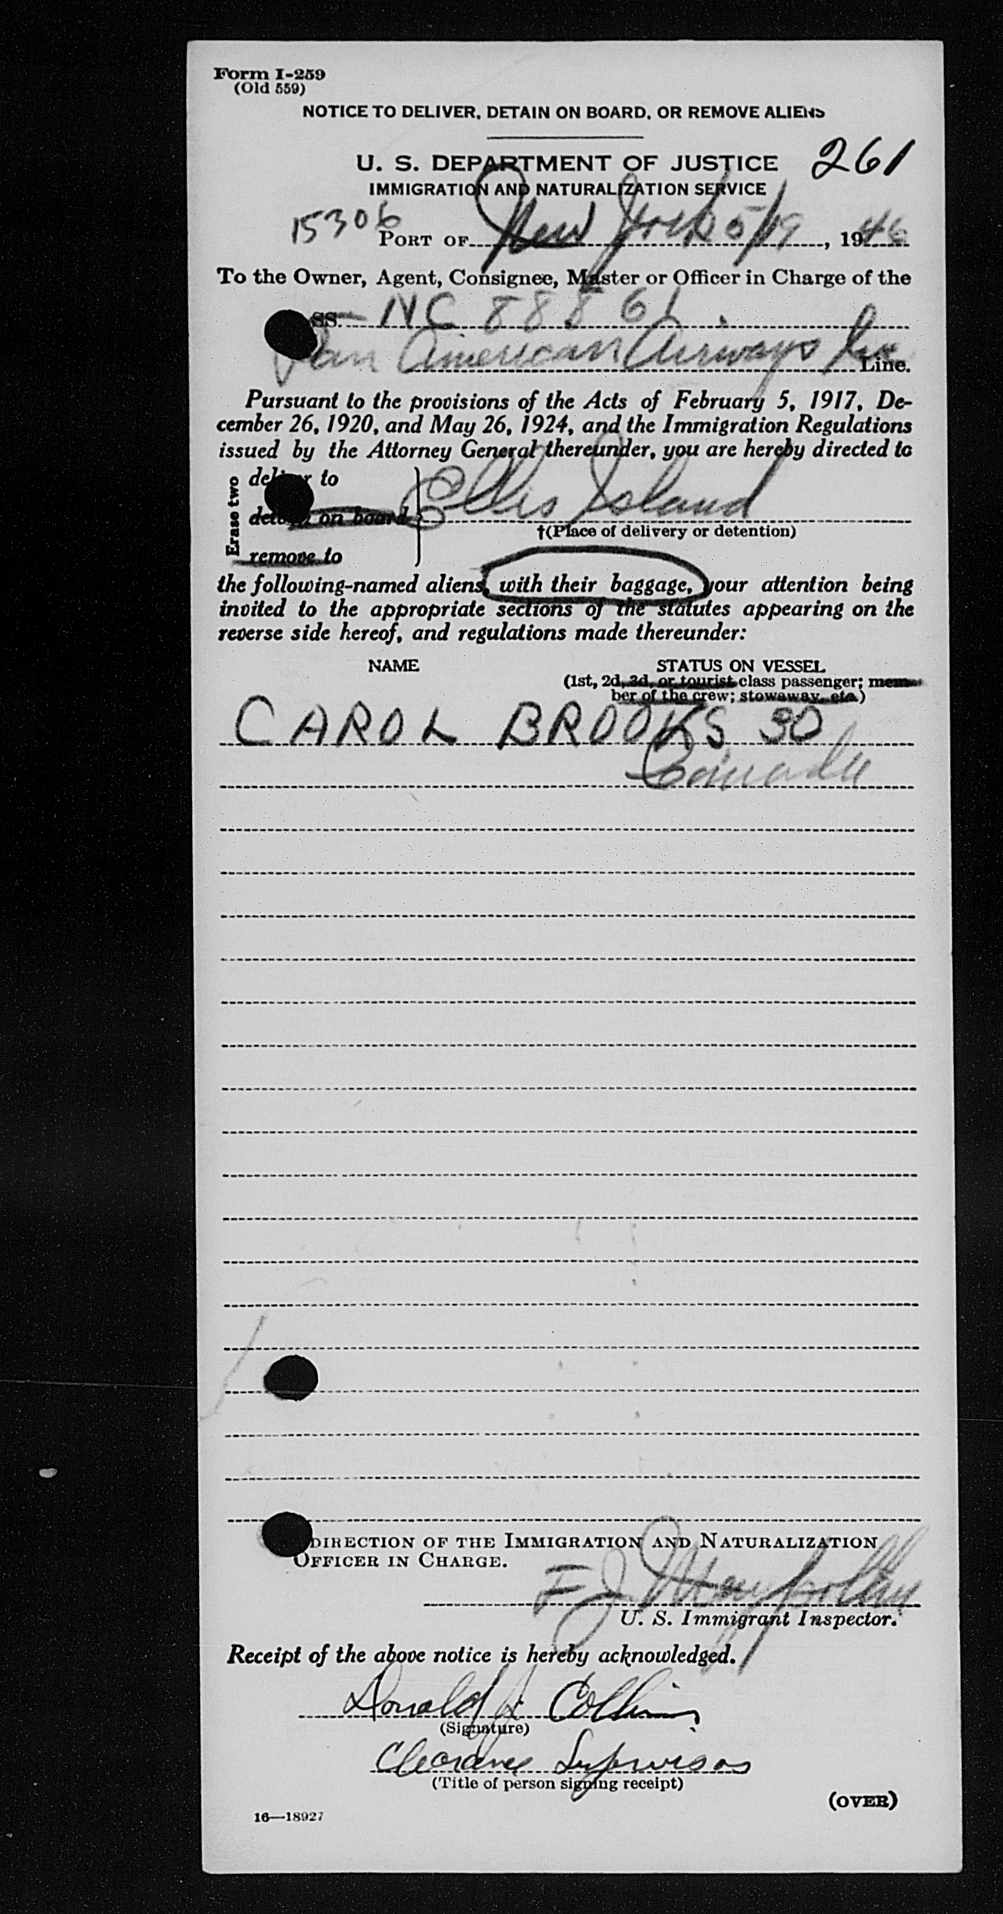 Form I-259
(Old 559)
NOTICE TO DELIVER, DETAIN ON BOARD, OR REMOVE ALIENS
U. S. DEPARTMENT OF JUSTICE 261
IMMIGRATION AND NATURALIZATION SERVICE
15306 PORT OF New York 5/19, 1946
To the Owner, Agent, Consignee, Master or Officer in Charge of the
SS. NC 88861
Pan American Airways Inc Line.
Pursuant to the provisions of the Acts of February 5, 1917, De-
cember 26, 1920, and May 26, 1924, and the Immigration Regulations
issued by the Attorney General thereunder, you are hereby directed to
Erase two
deliver to
detain on board
remove to
Ellis Island
†(Place of delivery or detention)
the following-named aliens, with their baggage, your attention being
invited to the appropriate sections of the statutes appearing on the
reverse side hereof, and regulations made thereunder:
NAME STATUS ON VESSEL
(1st, 2d, 3d, or tourist class passenger; mem-
ber of the crew; stowaway, etc.)
CAROL BROOKS 30
Canada
DIRECTION OF THE IMMIGRATION AND NATURALIZATION
OFFICER IN CHARGE.
F J
U. S. Immigrant Inspector.
Receipt of the above notice is hereby acknowledged.
Donald J. Collins
(Signature)
Clearance Supervisor
(Title of person signing receipt)
(OVER)
16—18927